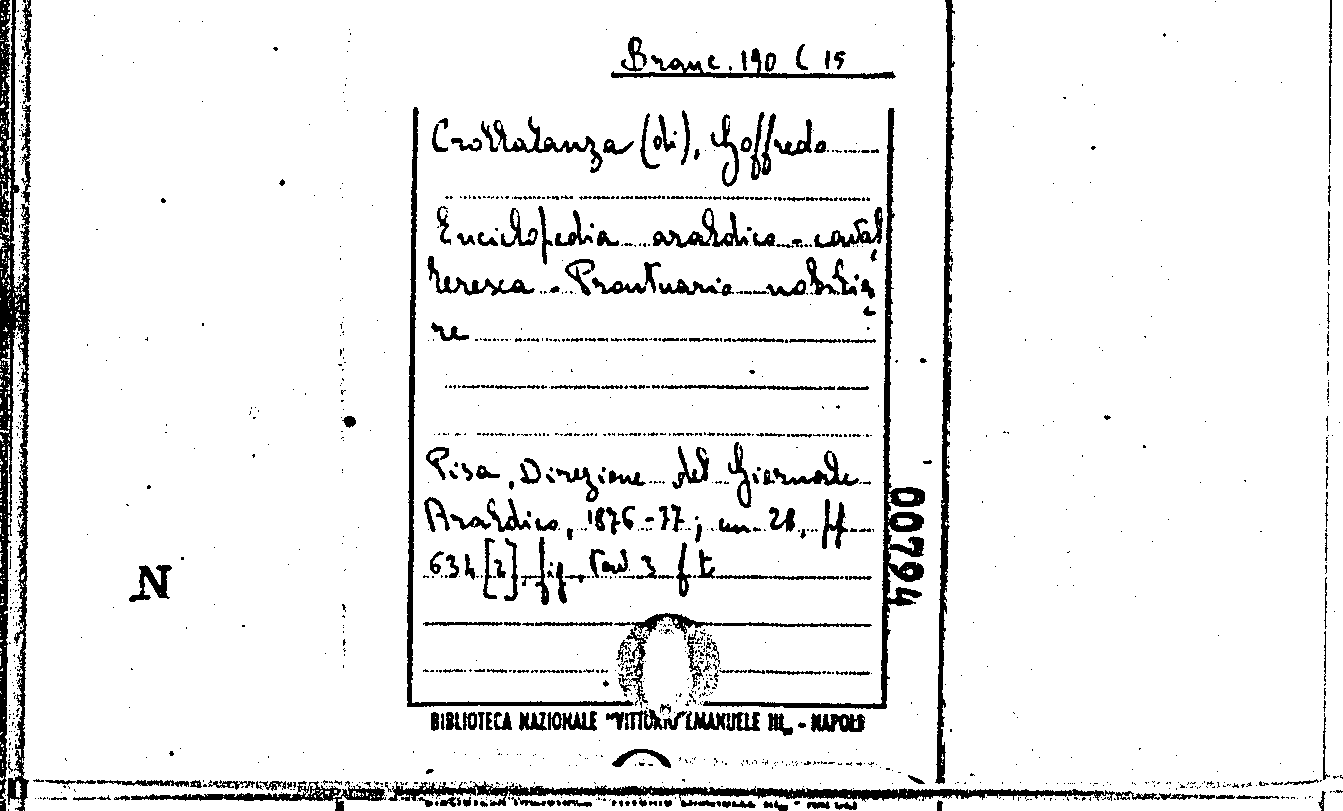 Branc. 190 C 15
Crollalanza (di), Goffredo
Enciclopedia araldico - caval
leresca - Prontuario nobilia
re
Pisa, Direzione del Giornale
Araldico, 1876-77; cm 28, pp
634 [2]. fig. Tav 3 f t
00794
N
BIBLIOTECA NAZIONALE "VITTORIO EMANUELE III„ - NAPOLI